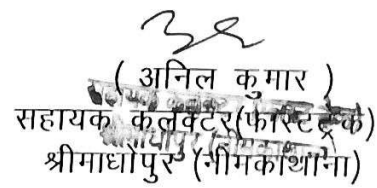 ( अनिल कुमार )
सहायक कलक्टर(फास्टट्रेक)
श्रीमाधोपुर (नीमकाथाना)